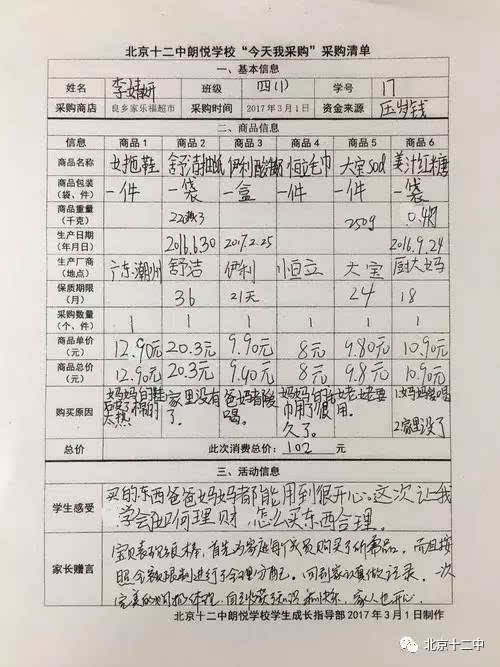 北京十二中朗悦学校“今天我采购”采购清单
一、基本信息
姓名 李婧妍 班级 四(1) 学号 17
采购商店 良乡家乐福超市 采购时间 2017年3月1日 资金来源 压岁钱
二、商品信息
信息 商品1 商品2 商品3 商品4 商品5 商品6
商品名称 女拖鞋 舒洁抽纸 伊利酸奶 恒立毛巾 大宝sod 姜汁红糖
商品包装（袋、件） 一件 一袋 一盒 一件 一件 一袋
商品重量（千克） 250g
生产日期（年月日） 2016.6.30 2017.2.25 2016.9.24
生产厂商（地点） 广东潮州 舒洁 伊利 恒立 大宝 厨大妈
保质期限（月） 36 21天 24 18
采购数量（个、件） 1 1 1 1 1 1
商品单价（元） 12.90元 20.3元 9.90元 8元 9.80元 10.90元
商品总价（元） 12.90元 20.3元 9.90元 8元 9.8元 10.90元
购买原因 妈妈的鞋 太热 家里没有了。 爸妈都 喝。 妈妈的 巾用了很久了。 姥姥要用。 1.妈妈 喝 2家里没了
总价 此次消费总价：102 元
三、活动信息
学生感受 买的东西爸爸妈妈都能用到很开心。这次让我
学会如何理财，怎么买东西合理。
家长赠言 宝贝表现很棒，首先为家庭每个成员购买了所需品。而且按
照金额限制进行了合理分配。回到家认真做记录。一次
完美的购物体验， 家人也开心
北京十二中朗悦学校学生成长指导部2017年3月1日制作
北京十二中